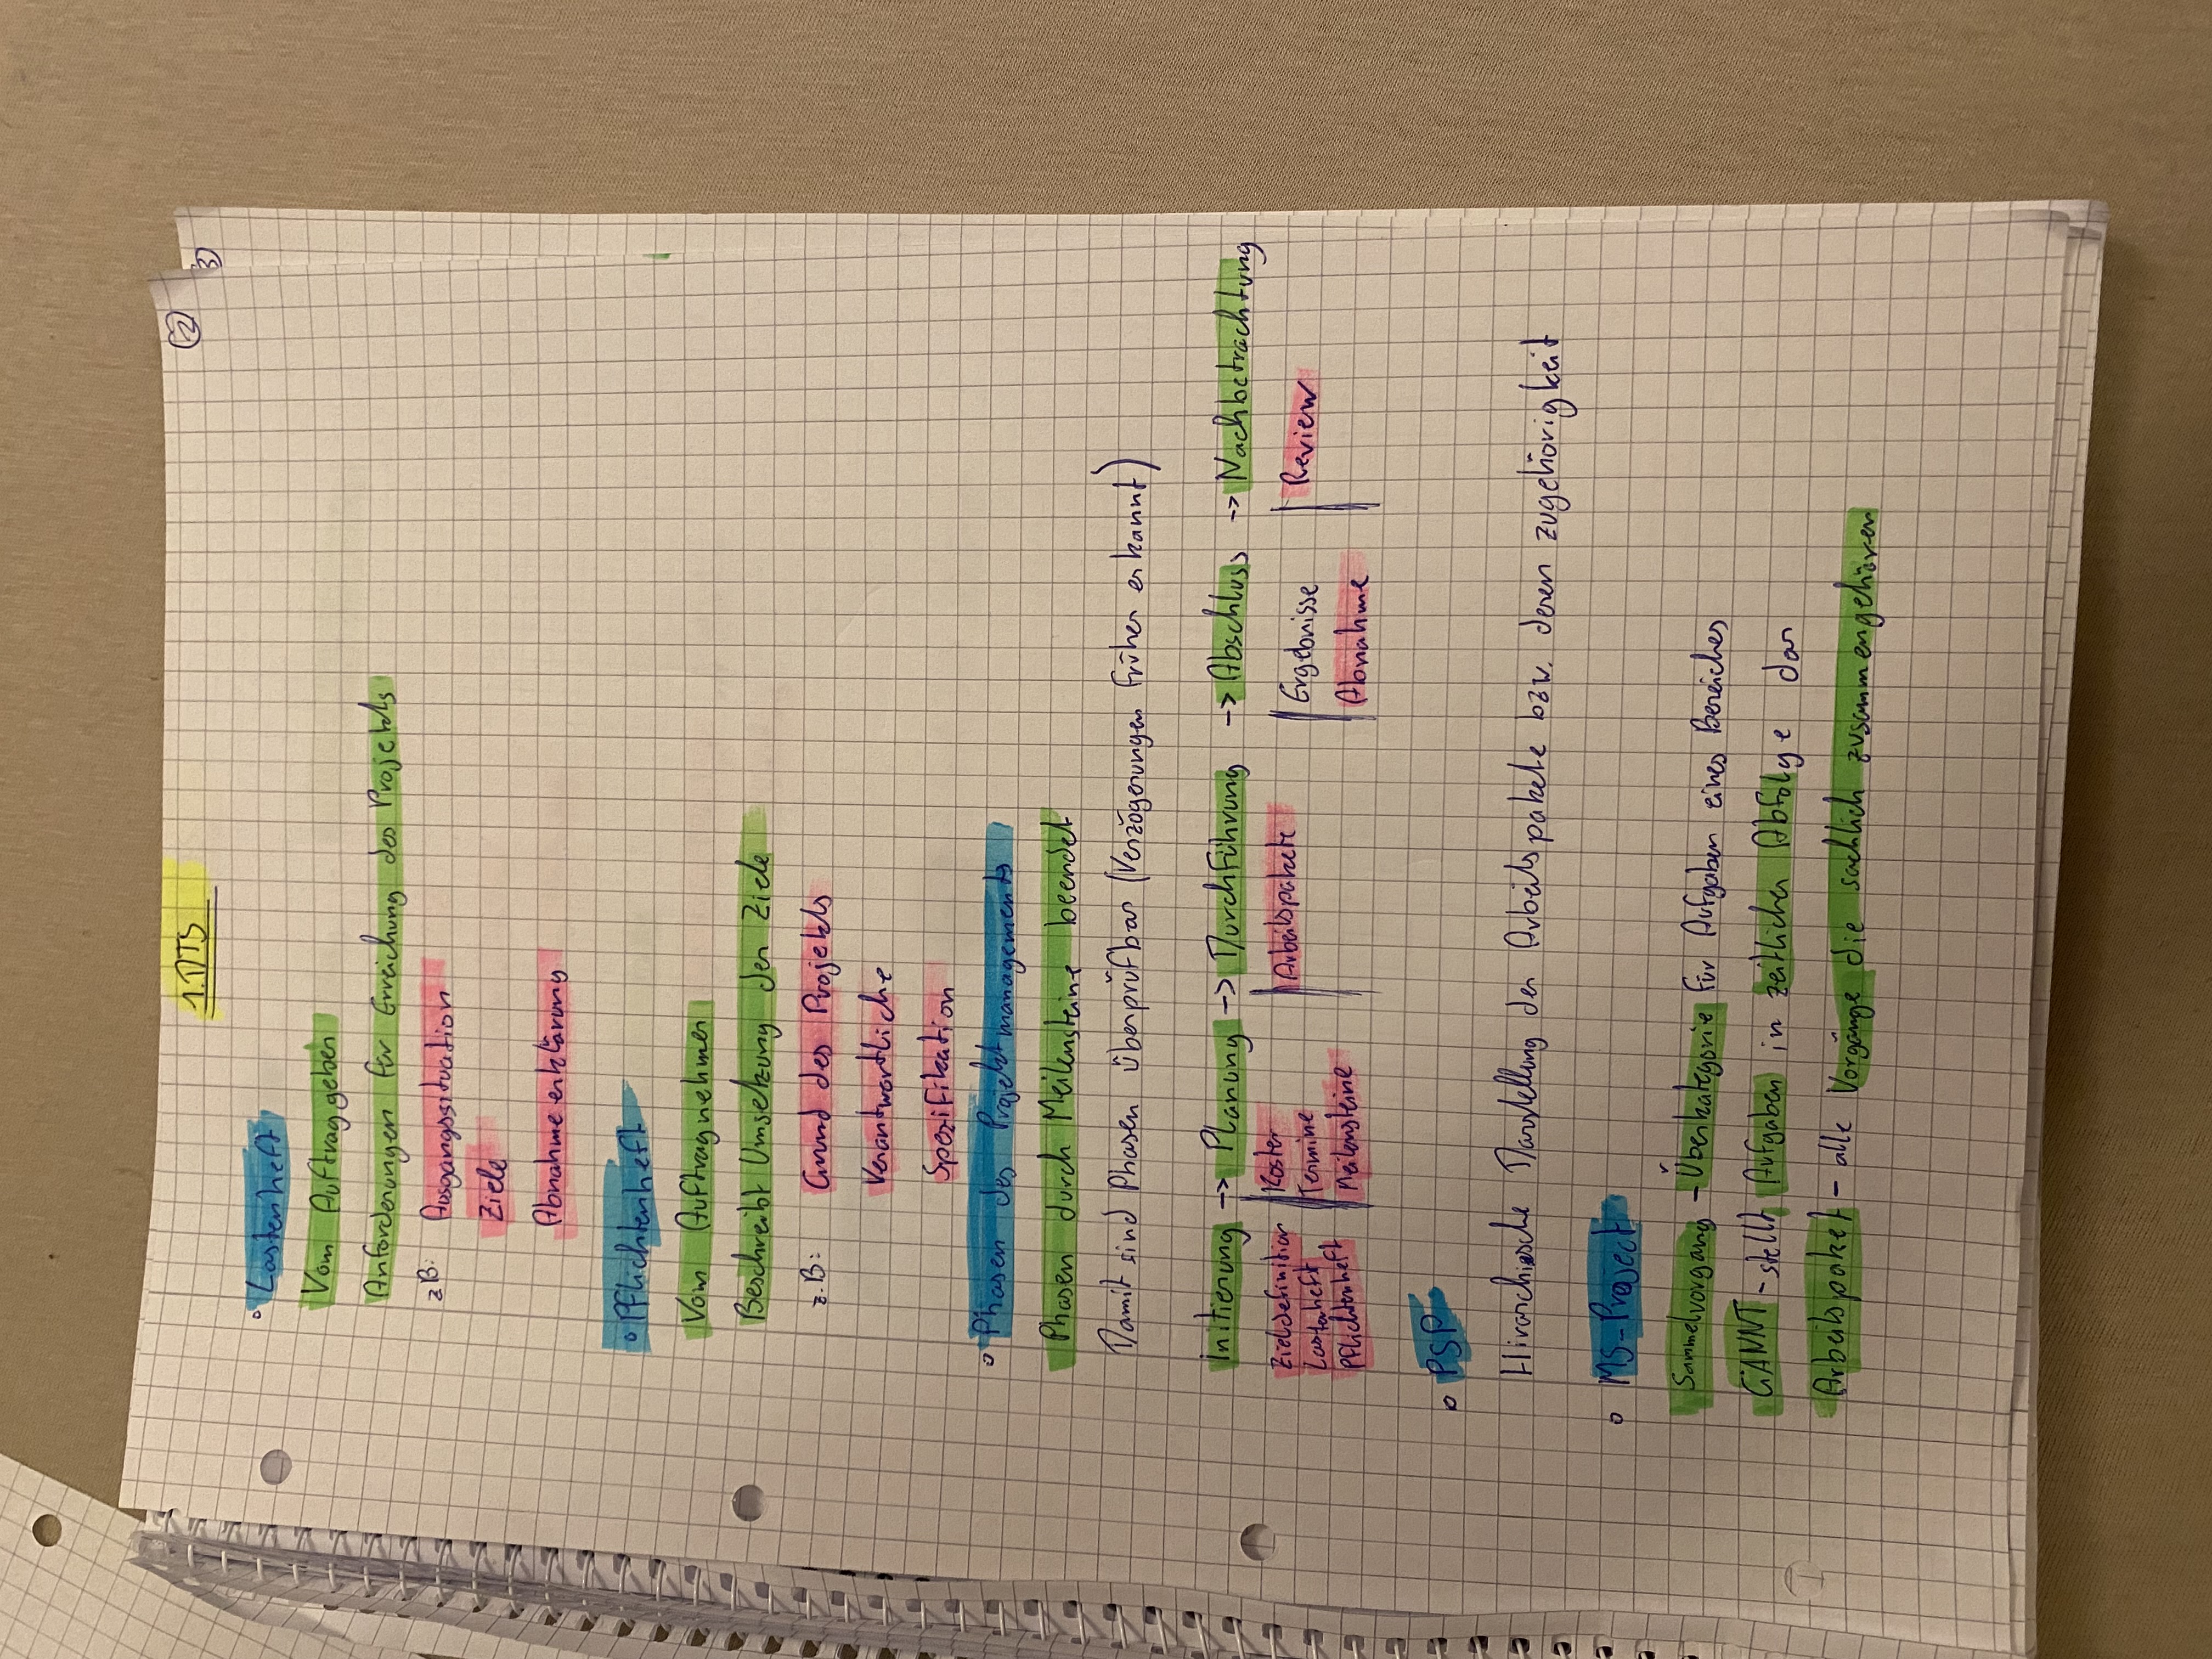 1. DTS
2
3
Lastenheft
Vom Auftraggeber
Anforderungen für Erreichung des Projekts
z.B: Ausgangssituation
Ziele
Abnahmeerklärung
Pflichtenheft
Vom Auftragnehmer
Beschreibt Umsetzung der Ziele
z.B: Grund des Projekts
Verantwortliche
Spezifikation
Phasen des Projektmanagements
Phasen durch Meilensteine beendet
Damit sind Phasen überprüfbar (Verzögerungen früher erkannt)
Initierung -> Planung -> Durchführung -> Abschluss -> Nachbetrachtung
Zieldefinition Kosten Arbeitspakete Ergebnisse Review
Lastenheft Termine Abnahme
Pflichtenheft Meilensteine
PSP
Hirarchische Darstellung der Arbeitspakete bzw. deren zugehörigkeit
MS-Project
Sammelvorgang - Überkategorie für Aufgaben eines Bereiches
GANNT - stellt Aufgaben in zeitlicher Abfolge dar
Arbeitspaket - alle Vorgänge die sachlich zusammengehören